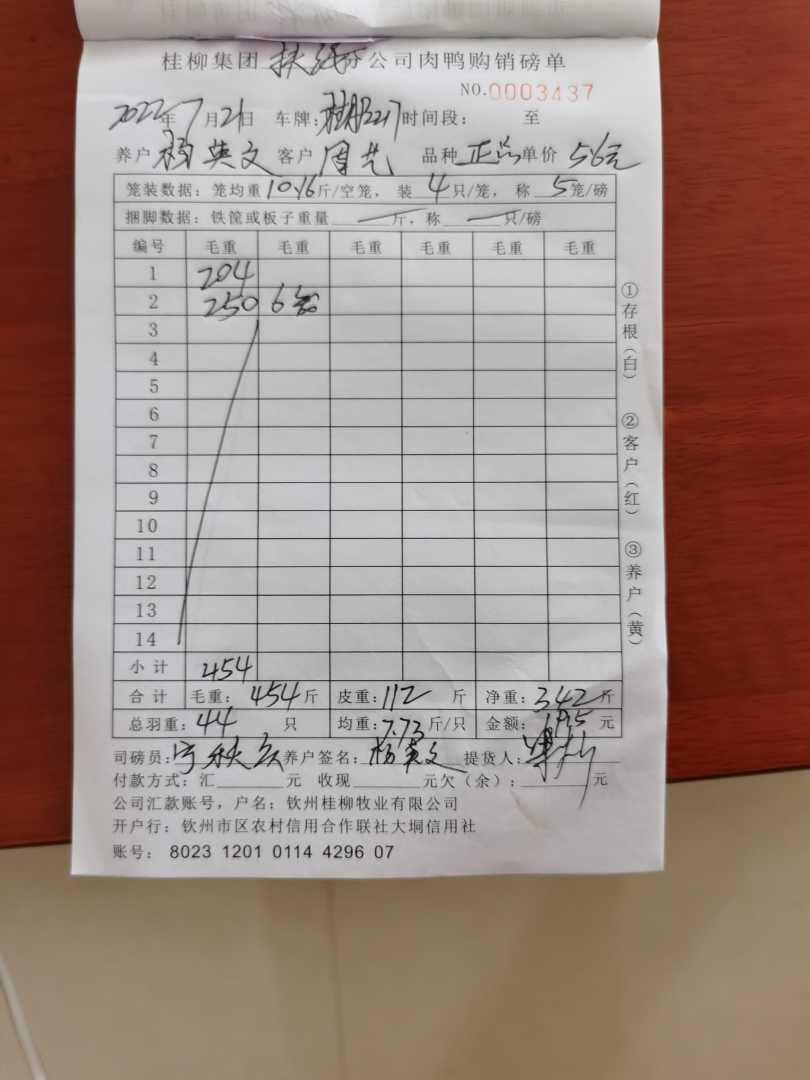 桂柳集团扶绥分公司肉鸭购销磅单
NO.0003437
2022年7月21日 车牌: 时间段: 至
养户杨英文 客户周艺 品种正品 单价5.6元
笼装数据: 笼均重10.16斤/空笼, 装4只/笼, 称5笼/磅
捆脚数据: 铁筐或板子重量 斤, 称 只/磅
编号 毛重 毛重 毛重 毛重 毛重 毛重
1 204
2 250 6
3
4
5
6
7
8
9
10
11
12
13
14
小计 454
合计 毛重: 454斤 皮重: 112斤 净重: 342斤
总羽重: 44只 均重: 7.73斤/只 金额: 1915元
司磅员: 养户签名: 杨英文 提货人:
付款方式: 汇 元 收现 元欠(余): 元
公司汇款账号, 户名; 钦州桂柳牧业有限公司
开户行: 钦州市区农村信用合作联社大垌信用社
账号: 8023 1201 0114 4296 07
①存根(白) ②客户(红) ③养户(黄)